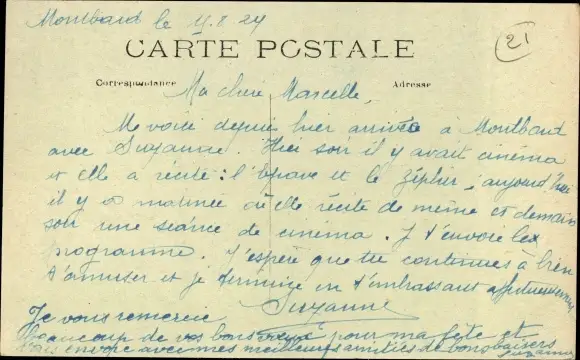 Montbard le 11.8.24
21
CARTE POSTALE
Correspondance
Adresse
Ma chère Marcelle,
Me voici depuis hier arrivée à Montbard
avec Suzanne. Hier soir il y avait cinéma
et elle a récité : l'épave et le zéphir ; aujourd'hui
il y a matinée où elle récite de même et demain
soir une séance de cinéma. Je t'envoie les
programme. J'espère que tu continues à bien
t'amuser et je termine en t'embrassant affectueusement
Suzanne
Je vous remercie
beaucoup de vos bons pour ma fête et
vous envoie avec mes meilleurs amitiés de bons baisers
Suzanne